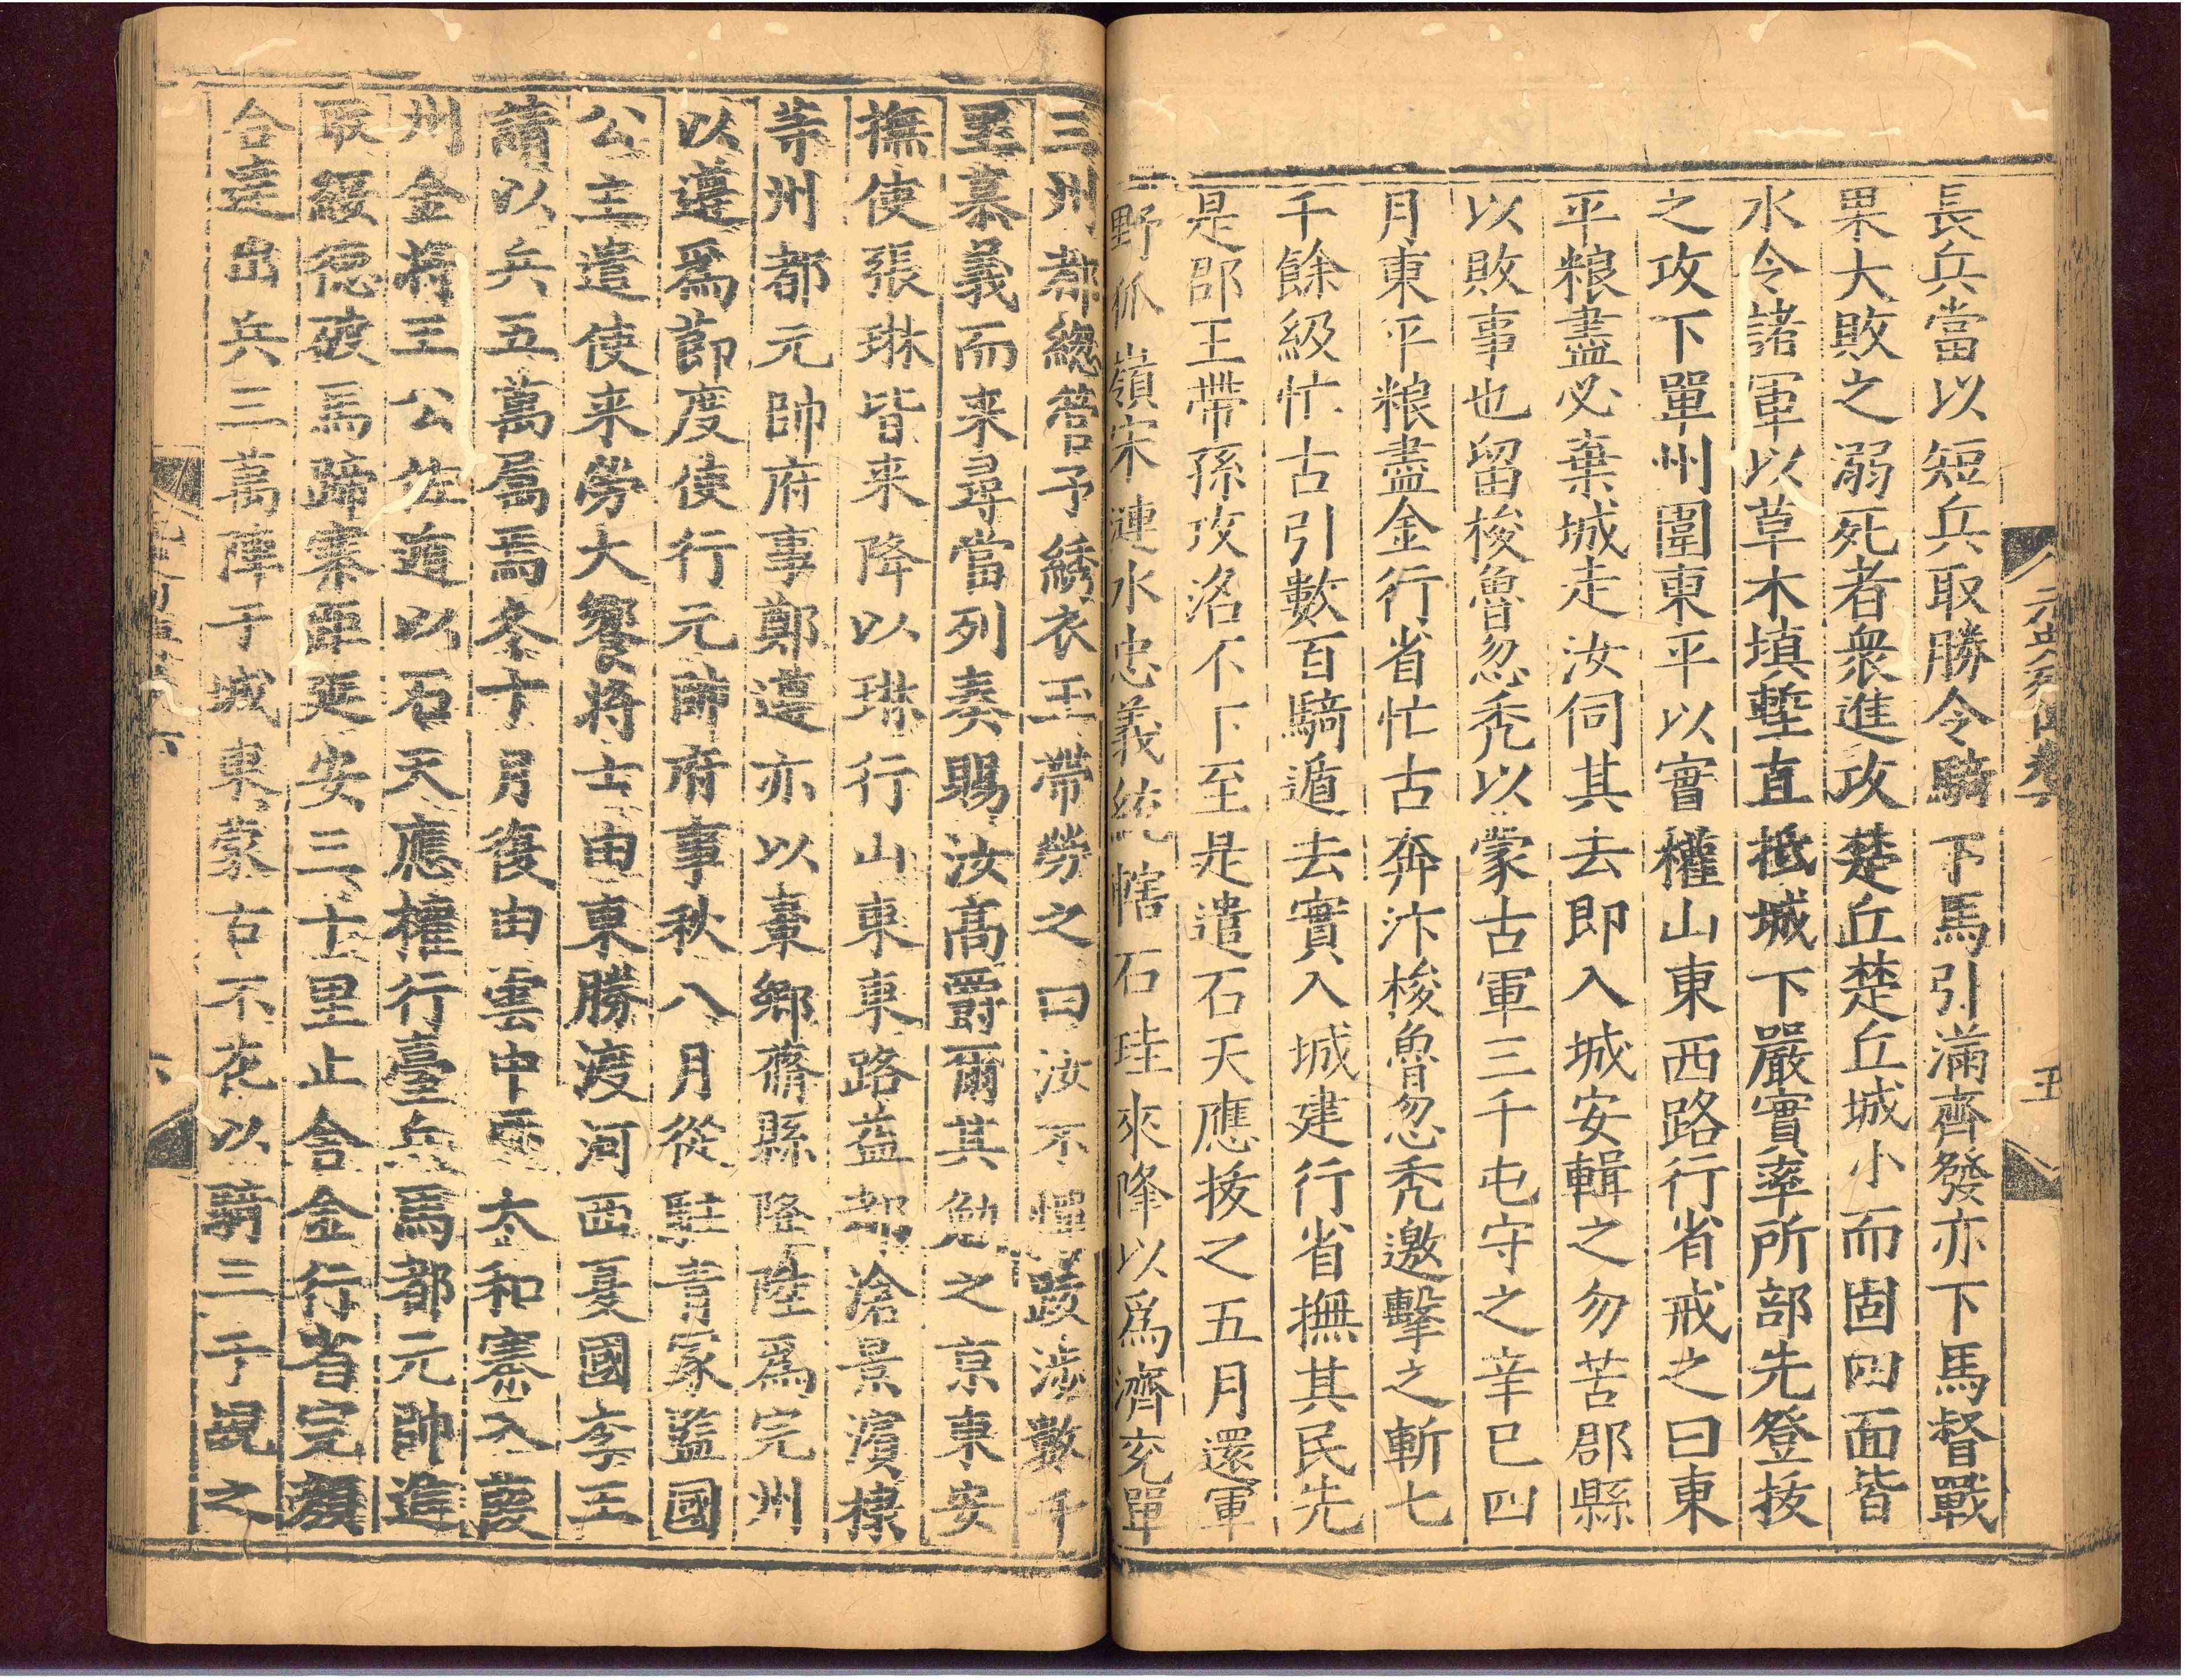 元史列傳卷六
五
長兵當以短兵取勝令騎下馬引滿齊發亦下馬督戰
果大敗之溺死者衆進攻楚丘楚丘城小而固四面皆
水令諸軍以草木填塹直抵城下嚴實率所部先登拔
之攻下單州圍東平以實權山東西路行省戒之曰東
平粮盡必棄城走汝伺其去即入城安輯之勿苦郡縣
以敗事也留梭魯忽禿以蒙古軍三千屯守之辛巳四
月東平粮盡金行省忙古奔汴梭魯忽禿邀擊之斬七
千餘級忙古引數百騎遁去實入城建行省撫其民先
是郡王帶孫攻洺不下至是遣石天應拔之五月還軍
野狐嶺宋漣水忠義統轄石珪來降以爲濟兖單
三州都緫管予綉衣玉帶勞之曰汝不憚跋涉數千
里慕義而来尋當列奏賜汝髙爵爾其勉之京東安
撫使張琳皆来降以琳行山東東路益都滄景濵棣
等州都元帥府事鄭遵亦以棗鄉蓨縣降陞爲完州
以遵爲節度使行元帥府事秋八月從駐青冢監國
公主遣使来勞大饗將士由東勝渡河西夏國李王
請以兵五萬屬焉冬十月復由雲中歷太和寨入葭
州金將王公佐遁以石天應權行臺兵馬都元帥進
取綏德破馬蹄寨距延安三十里止舍金行省完顔
合達出兵三萬陣于城東蒙古不花以騎三千覘之
六